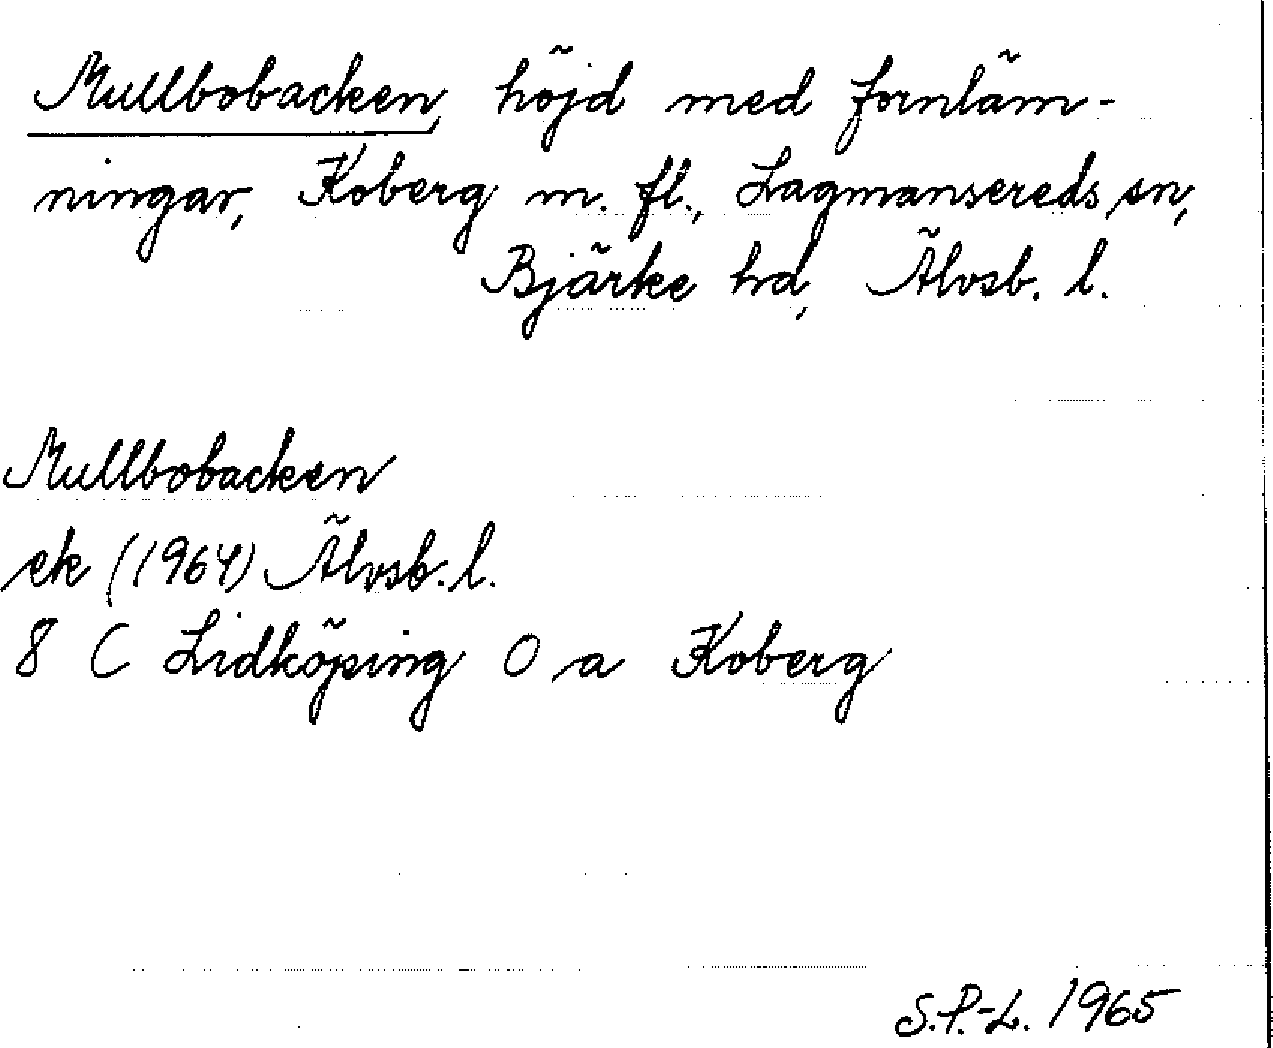 Mullbobacken, höjd med fornläm-
ningar, Koberg m. fl., Lagmansereds sn,
Bjärke hd, Älvsb. l.
Mullbobacken
ek (1964) Älvsb. l.
8 C Lidköping 0 a Koberg
S.P.-L. 1965